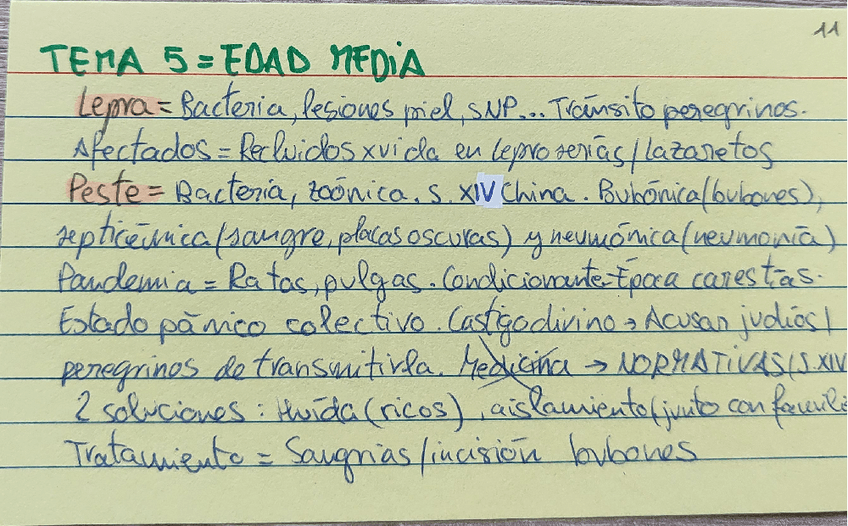 11
TEMA 5 = EDAD MEDIA
Lepra = Bacteria, lesiones piel, SNP... Tránsito peregrinos.
Afectados = Recluidos x vida en leproserías/lazaretos
Peste = Bacteria, zoónica. S. XIV China. Bubónica (bubones),
septicémica (sangre, placas oscuras) y neumónica (neumonía)
Pandemia = Ratas, pulgas. Condicionante = Época carestías.
Estado pánico colectivo. Castigo divino → Acusar judíos/
peregrinos de transmitirla. Medicina → NORMATIVAS (S. XIV
2 soluciones: Huída (ricos), aislamiento (junto con famili
Tratamiento = Sangrías/incisión bubones